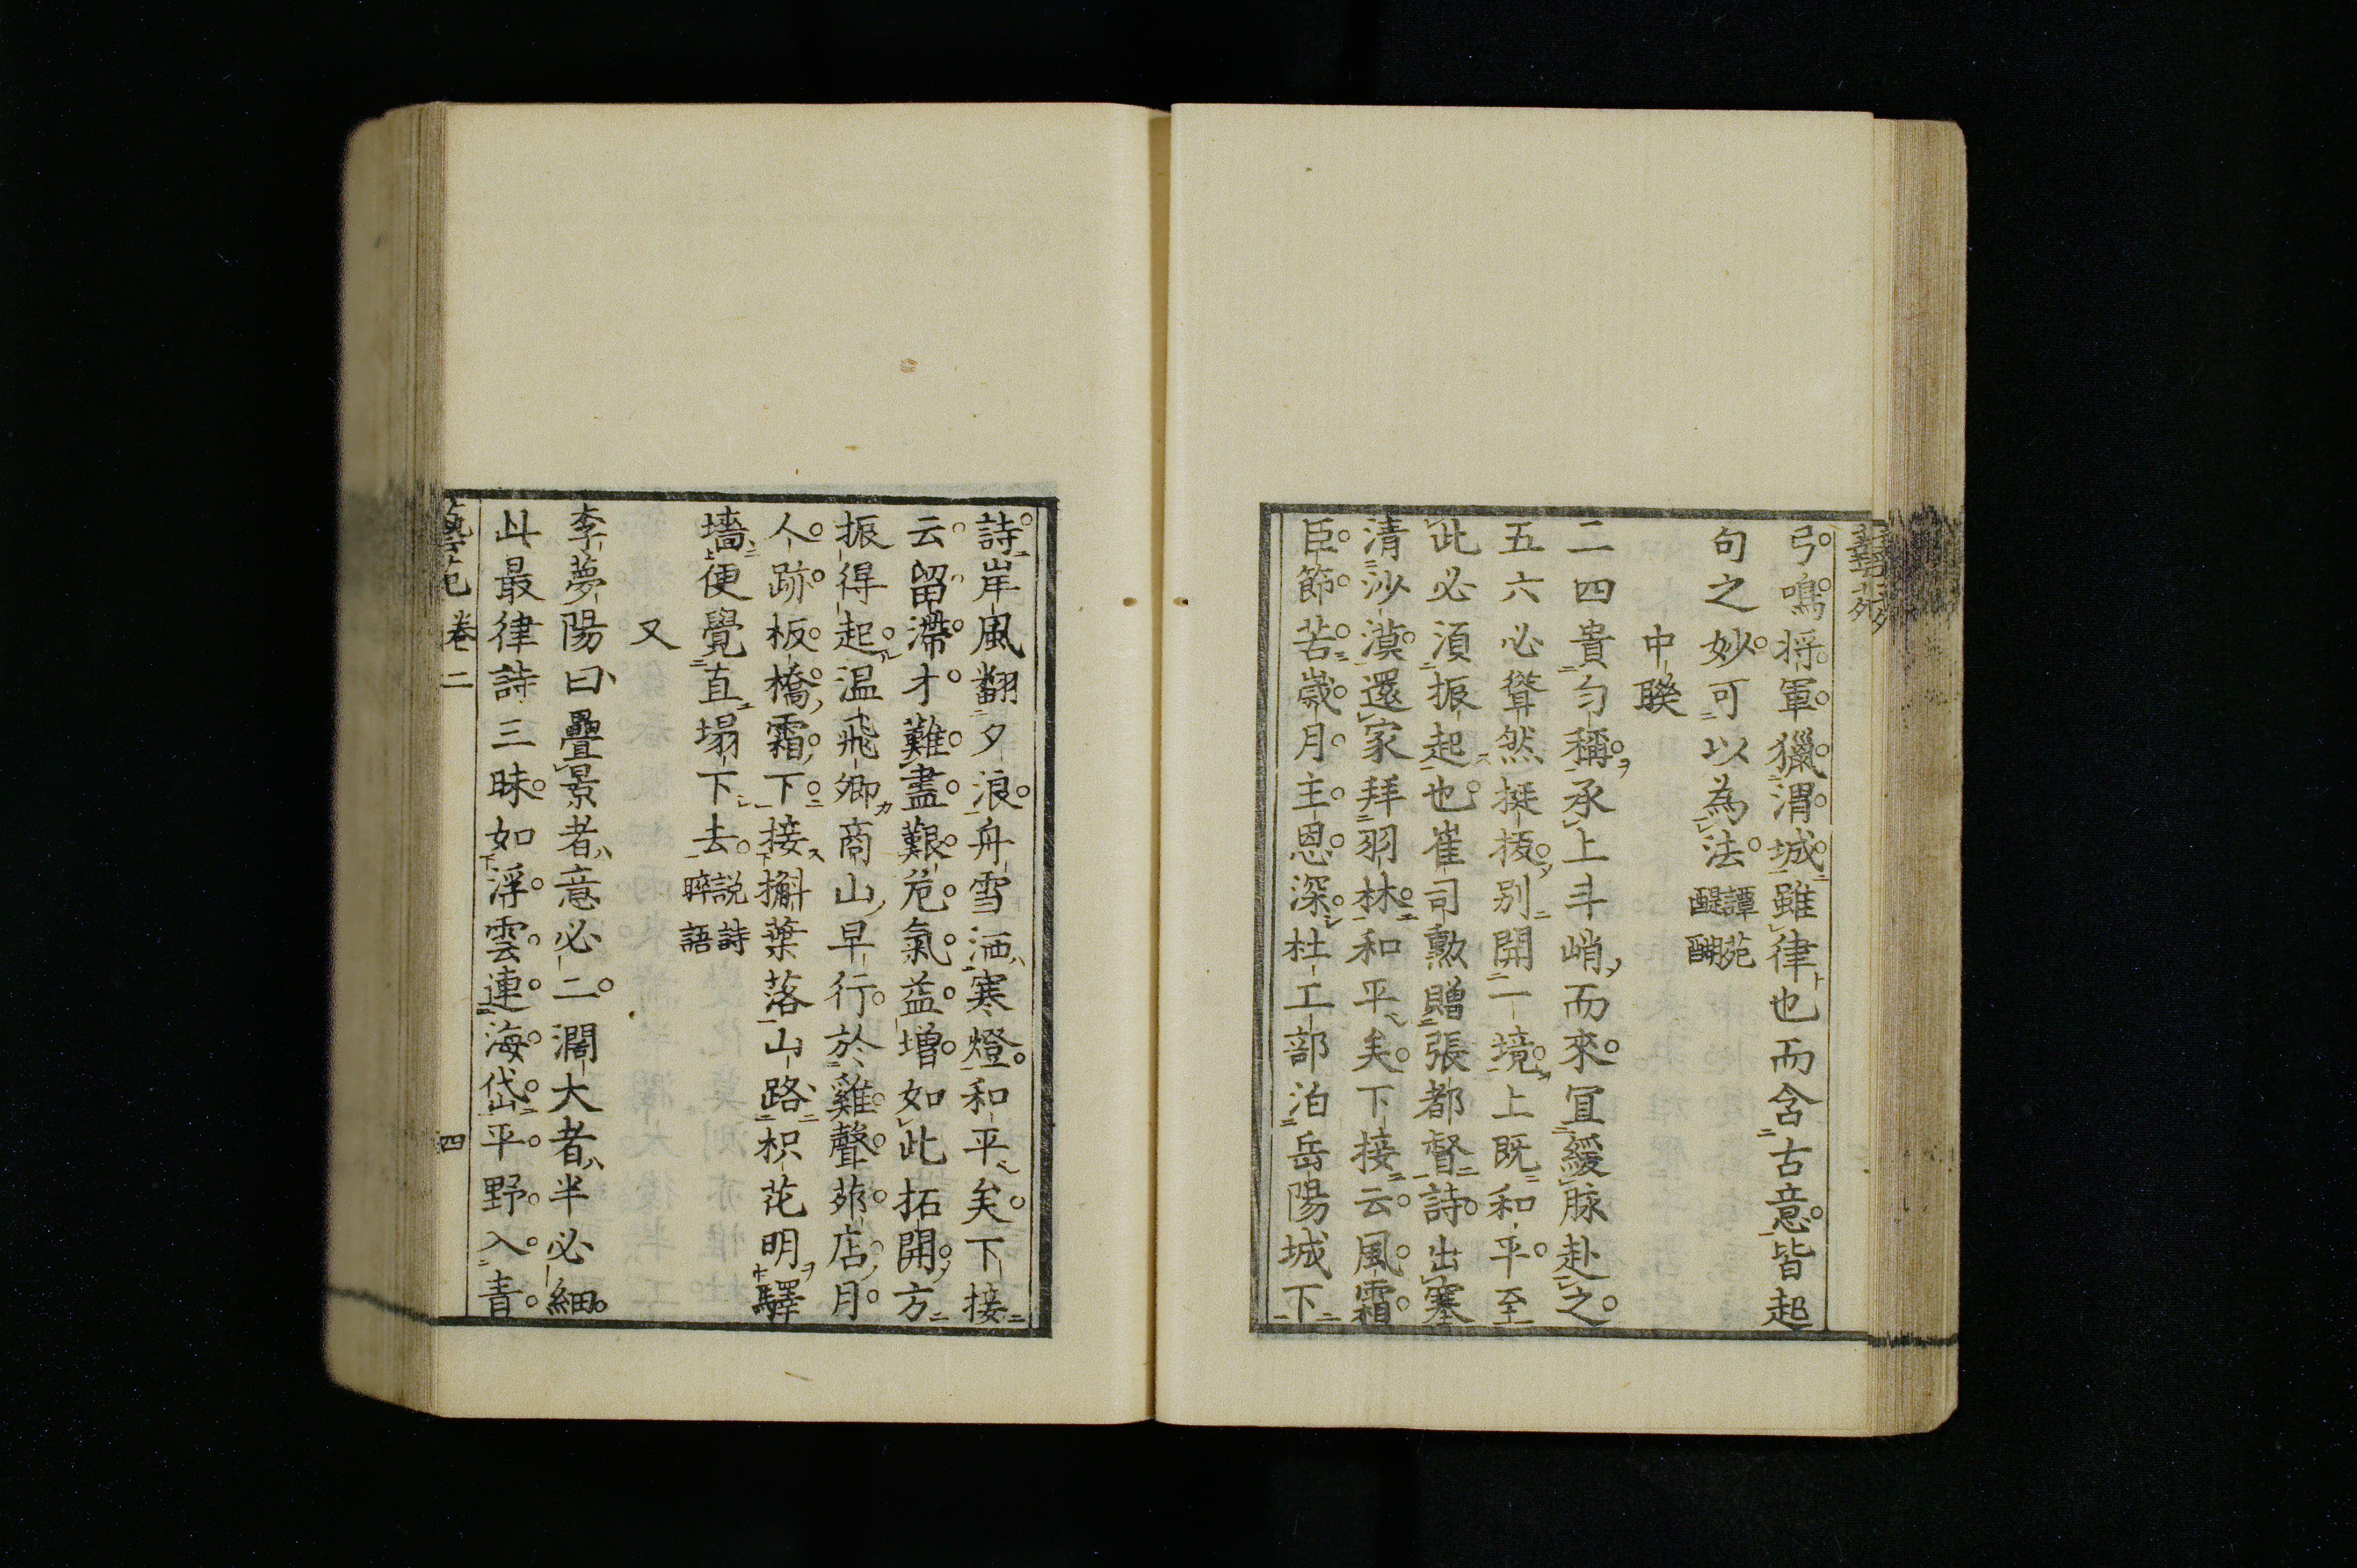 弓鳴将軍獵渭城雖律也而含古意皆起
句之妙可以為法譚苑醍醐
中聯
二四貴勻稱承上斗峭而來冝緩脉赴之
五六必聳然挺拔别開一境上既和平至
此必湏振起也崔司勲贈張都督詩出塞
清沙漠還家拜羽林和平矣下接云風霜
臣節苦歳月主恩深杜工部泊岳陽城下
詩岸風翻夕浪舟雪洒寒燈和平矣下接
云留滯才難盡艱危氣益増如此拓開方
振得起温飛卿商山早行於雞聲茅店月
人跡板橋霜下接槲葉落山路枳花明驛
墻便覺直塌下去説詩晬語
又
李夢陽曰疊景者意必二濶大者半必細
此最律詩三昧如浮雲連海岱平野入青
藝苑 卷二 四